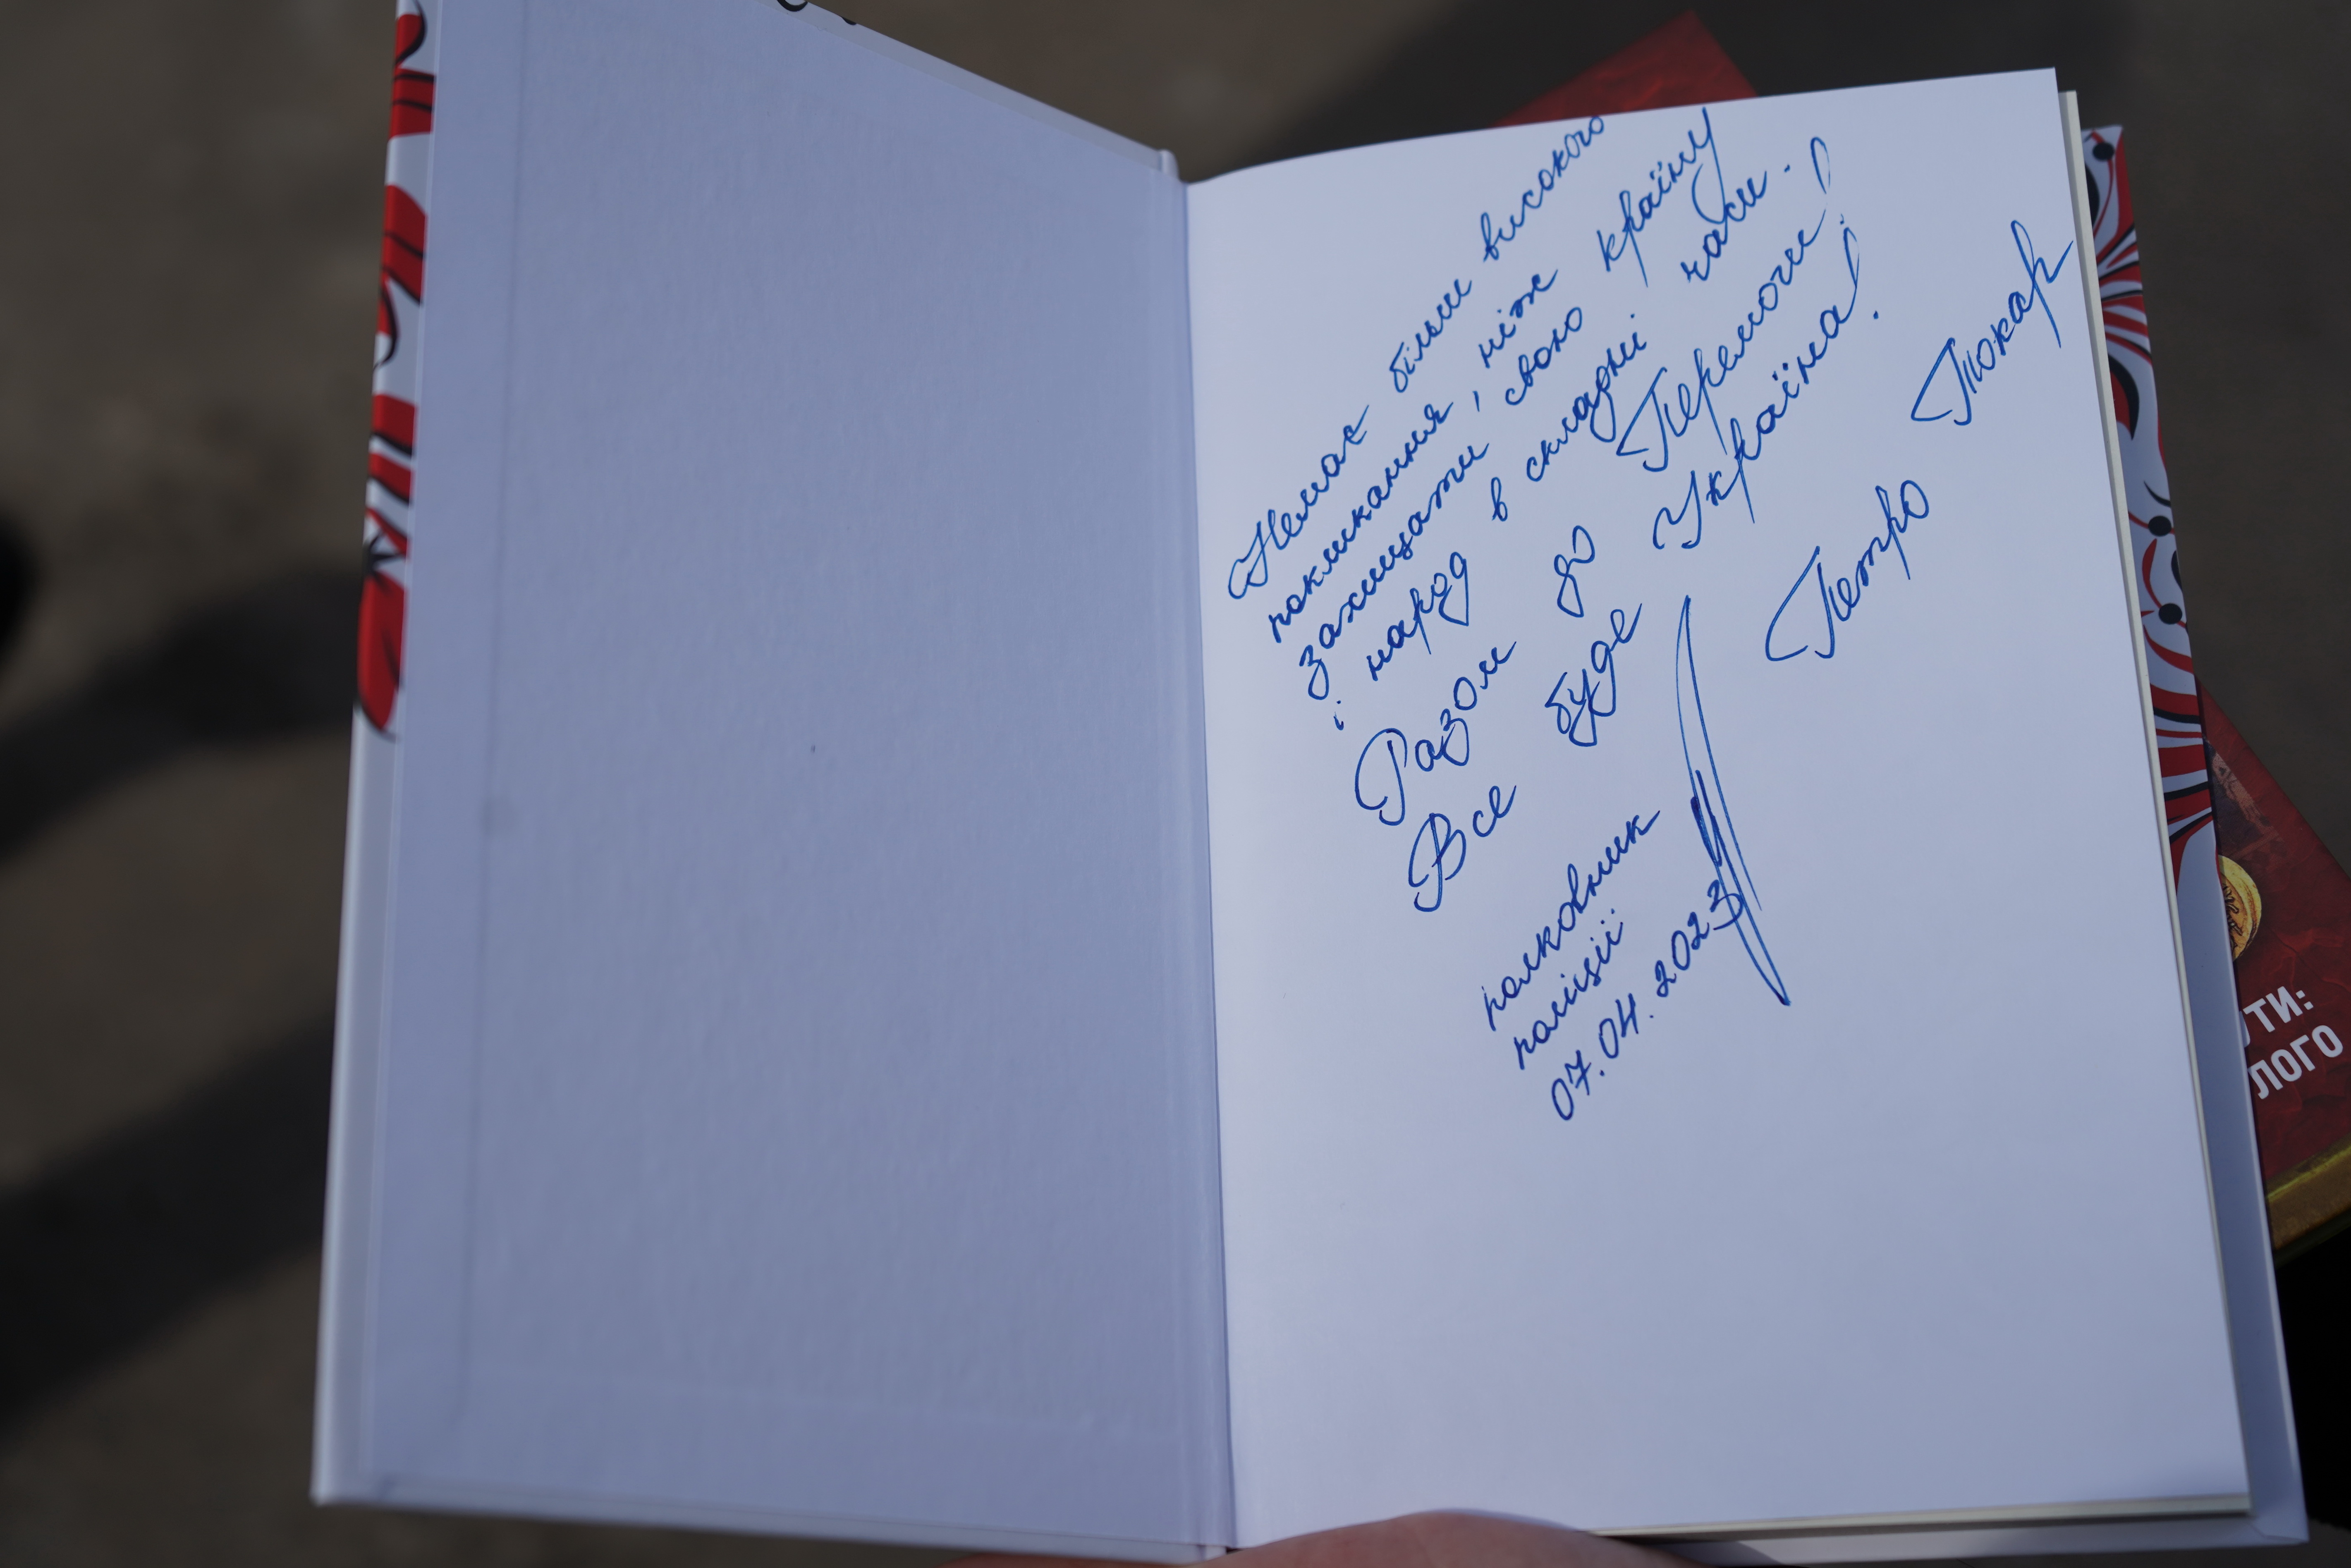 Немає більш високого
покликання, ніж
захищати свою країну
і народ в складні часи.
Разом до Перемоги!
Все буде Україна!
полковник
поліції
Петро Токар
07.04.2023
ЛОГО